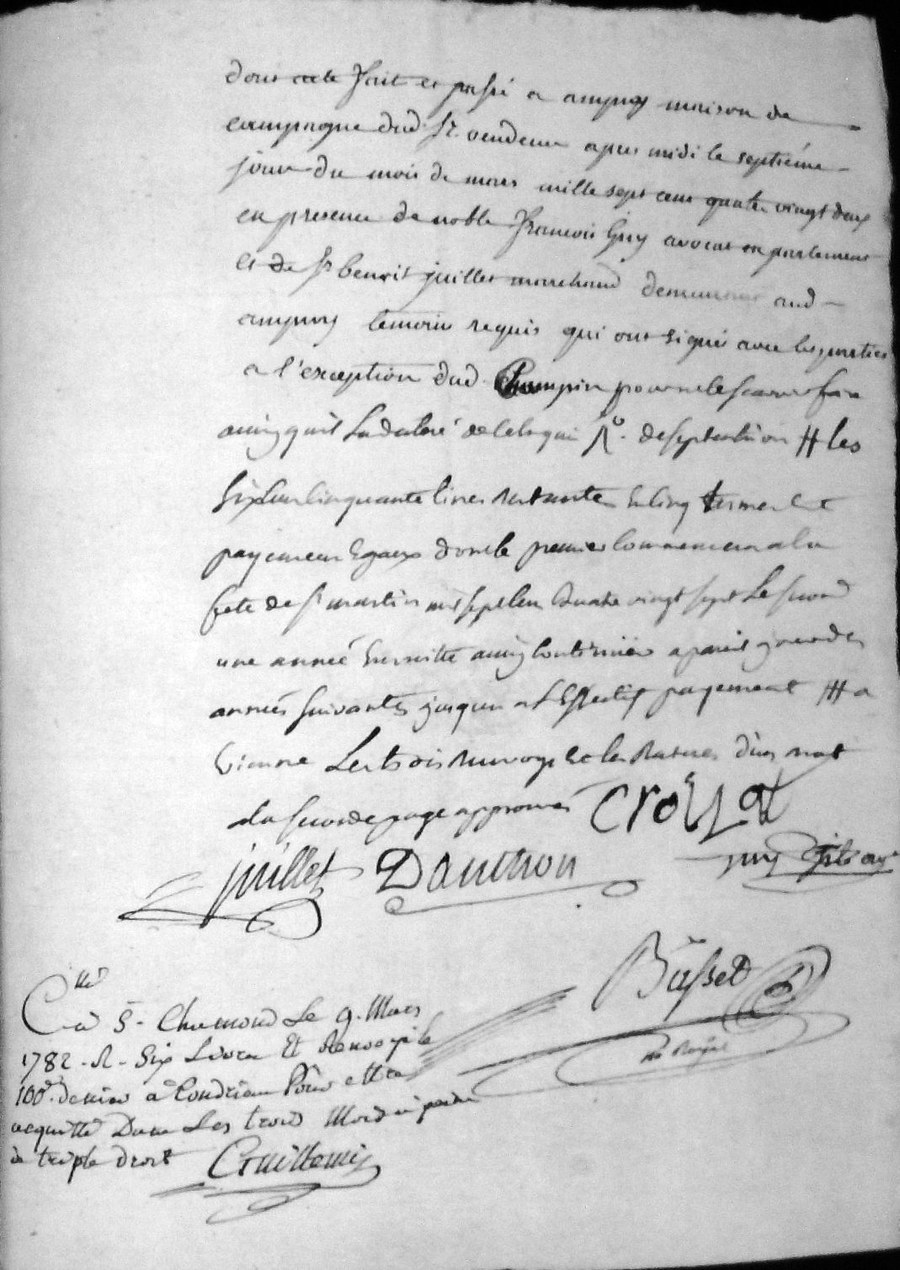 dont acte fait et passé a ampuy maison de
campagne dud. Sr. vendeur apres midi le septiéme
jour du mois de mars mille sept cent quatre vingt deux
en presence de noble françois Guy avocat en parlement
et de Sr benoit juillet marchand demeurant aud
ampuy temoins requis qui ont signé avec les parties
a l'exception dud Champin pour ne le scavoir faire
ainsy quil la declaré de ce enquis
six cent cinquante livres restantes en cinq termes et
payemens Egaux dont le premier commencera a la
fete de st martin mil sept cen quatre vingt sept Le second
une année Ensuitte ainsy continuer a pareil jour des
années suivantes jusques a l'Effectif payement # a
vienne Les trois renvoys et les ratures d'un mot
a la seconde page approuvés Crozat
juillet Dauthon guy fils
Busset
nre Royal
C.lé a St. Chamond Le 9. Mars
1782. R. Six Livres Et Renvoyé le
100e. denier à Condrieu Pour etre
acquitté Dans Les trois Mois a peine
de triple droit Guillemin